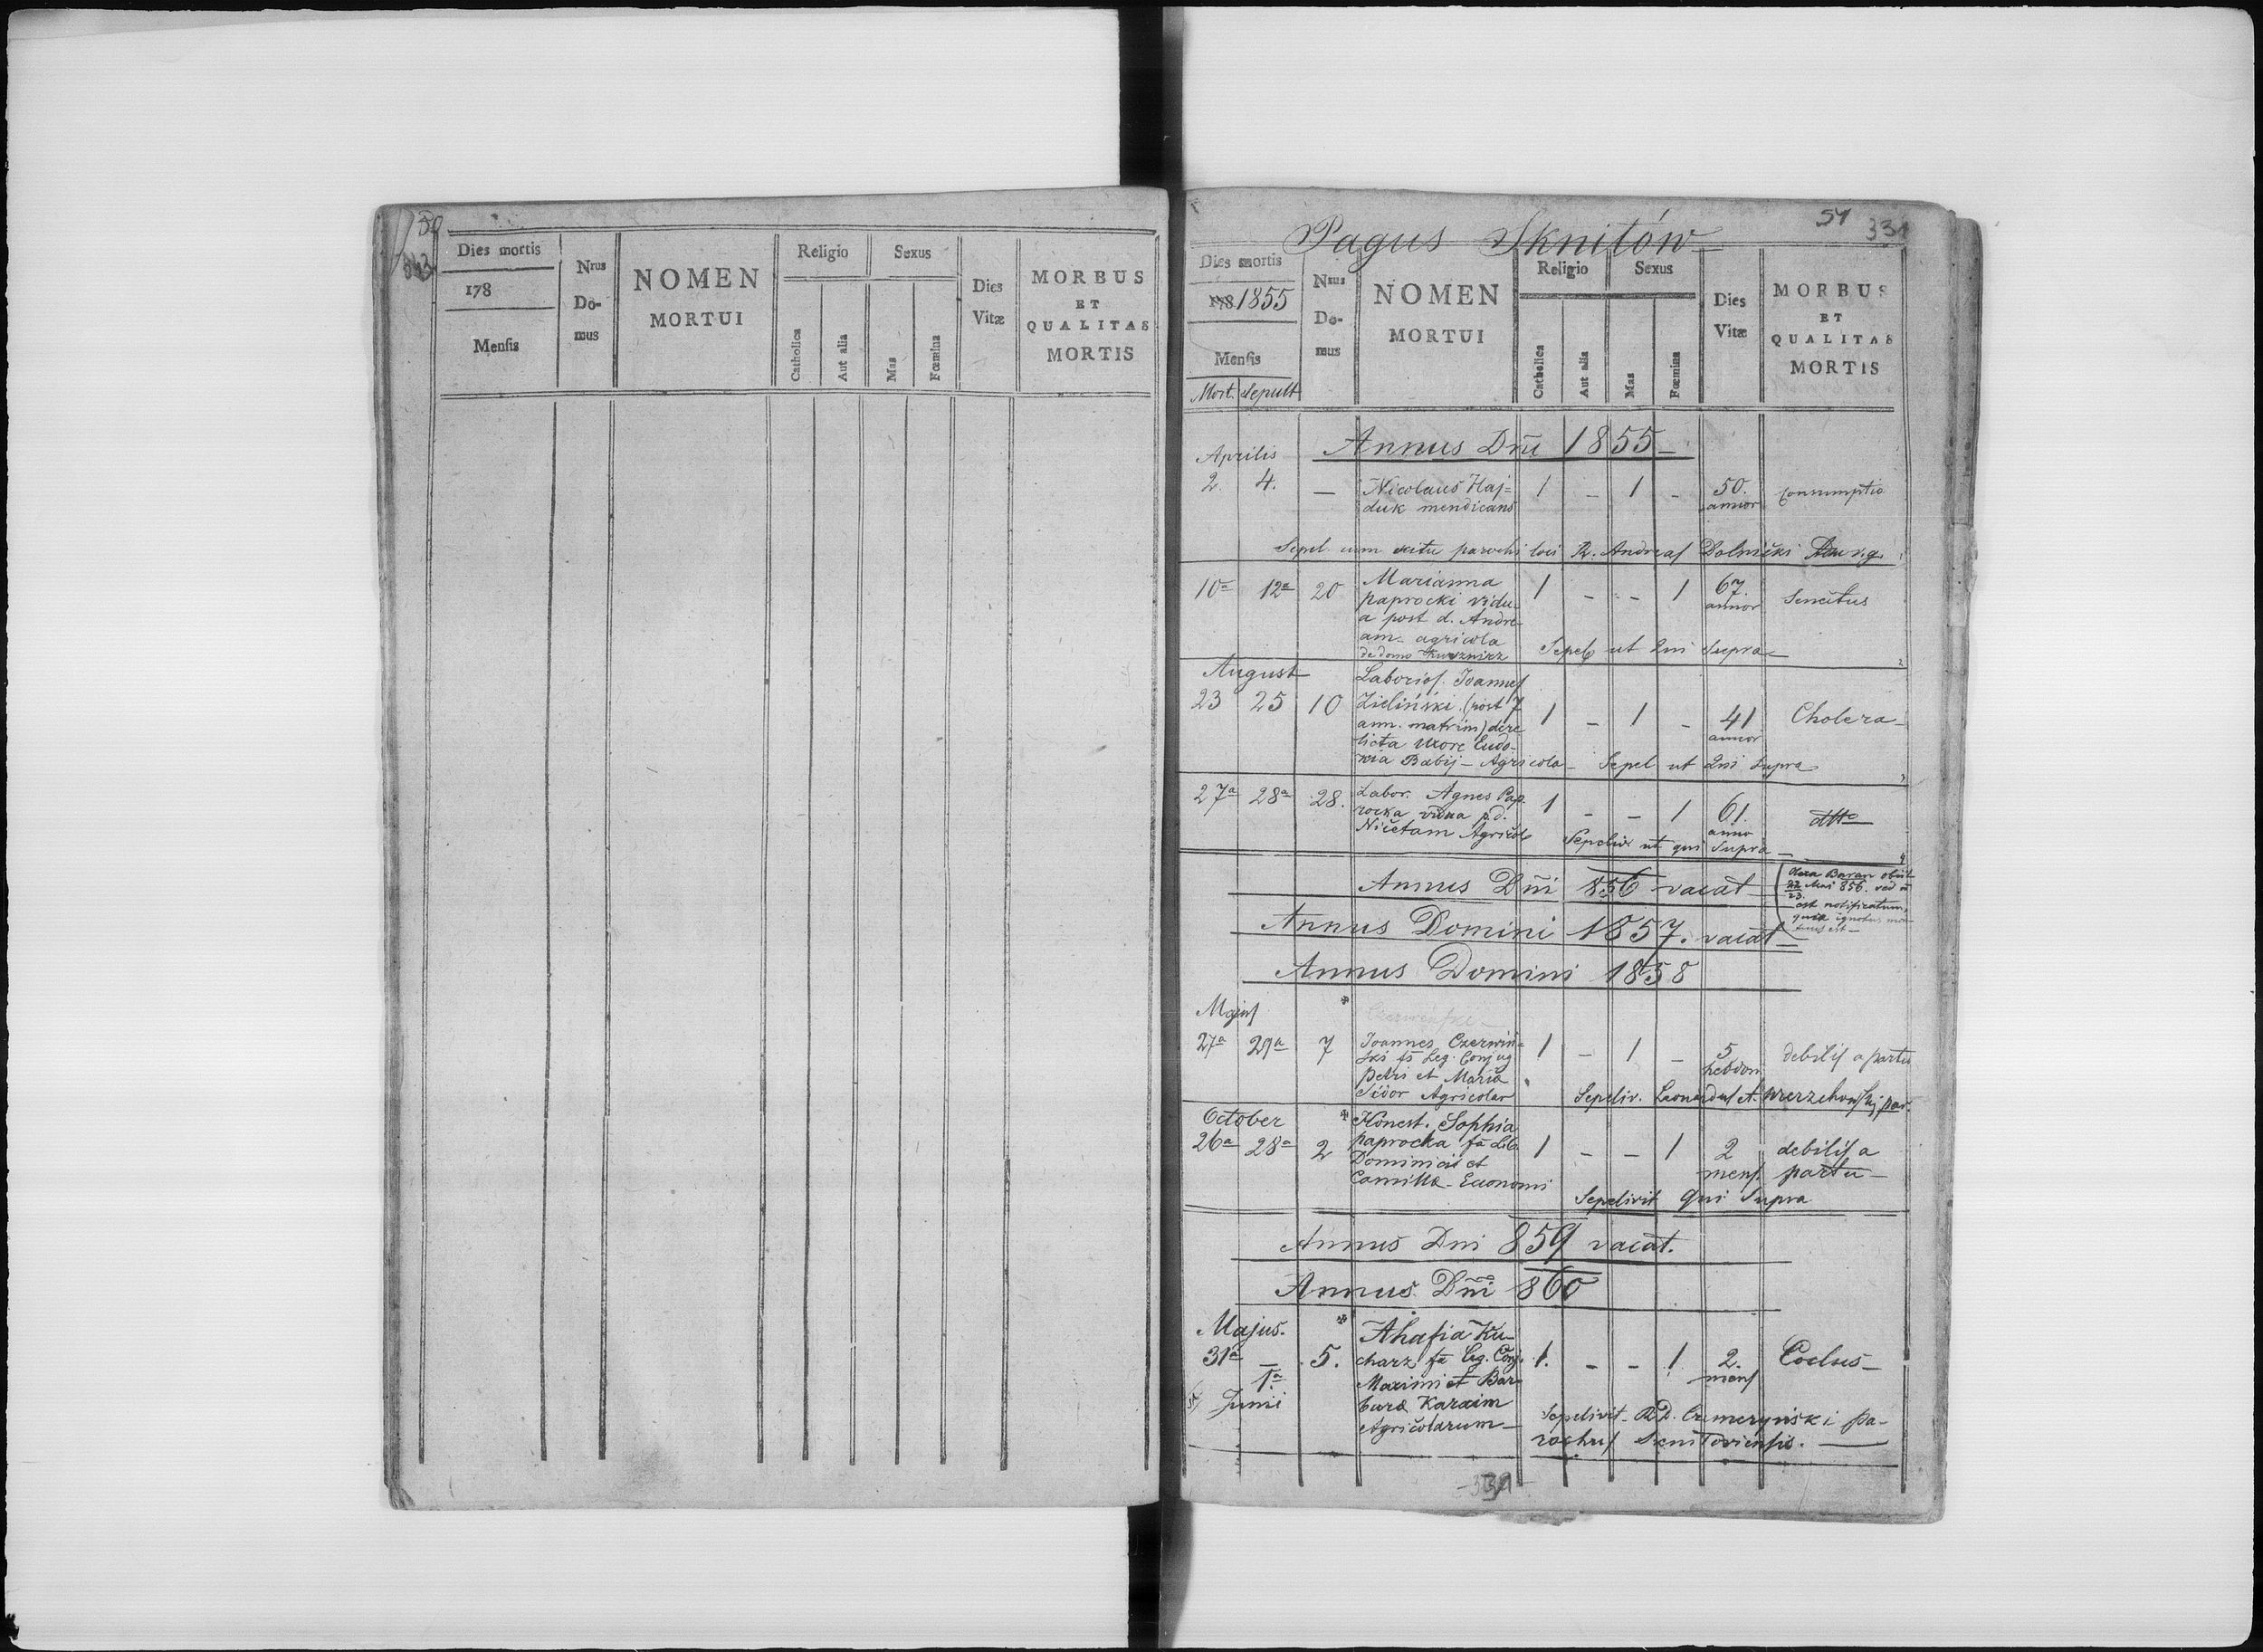 50
Dies mortis
178
Mensis
Nrus
Do-
mus
NOMEN
MORTUI
Religio
Catholica
Aut alia
Sexus
Mas
Fœmina
Dies
Vitæ
MORBUS
ET
QUALITAS
MORTIS
51 331
Pagus Sknitów
Dies mortis
178 1855
Mensis
Mort. Sepult
Nrus
Do-
mus
NOMEN
MORTUI
Religio
Catholica
Aut alia
Sexus
Mas
Fœmina
Dies
Vitæ
MORBUS
ET
QUALITAS
MORTIS
Annus Dni 1855
Aprilis
2. 4. — Nicolaus Haj= 1 - 1 - 50. Consumptio
duk mendicans annor
Sepel. cum scitu parochi loci R. Andreas Dolnicki
10a 12a 20 Marianna 1 - - 1 67. Senectus
paprocki vidu- annor
a post d. Andre-
am agricola
de domo Kusznirz Sepel ut qui Supra
August
Laborios. Joannes
23 25 10 Zieliński (post 7 1 - 1 - 41 Cholera
ann. matrim) dere annor
licta uxore Eudo-
kia Babij - Agricola - Sepel ut qui supra
27a 28a 28. Labor. Agnes Pap. 1 - - 1 61 dtto
rocka vidua p.d. anno
Nicetam Agricol Sepeliv ut qui Supra
Annus Dni 856 vacat
Baran obiit
22 Mai 856.
23.
est notificatum,
quia ignotus mor
tuus est
Annus Domini 1857. vacat
Annus Domini 1858
Majus
27a 29a 7 Joannes Czerwiń- 1 - 1 - 5 debilis a partu
ski fs Leg. Conjug hebdom
petri et Maria
Sidor Agricolar Sepeliv. Leonardus A. Wierzchowskij par.
October
26a 28a 2 Honest. Sophia
paprocka fa Leg. 1 - - 1 2 debilis a
Dominici et mens partu
Camilla - Economi
Sepelivit qui Supra
Annus Dni 859 vacat.
Annus Dni 860
Majus. Ahafia Ku-
31a - 5. charz fa Leg. Conj. 1. - - 1. 2. Coclus
1a Maximi et Bar- mens
Junii bara Karaim
Agricolarum Sepelivit R.D. Czemeryński pa-
rochus Sknitoviensis.